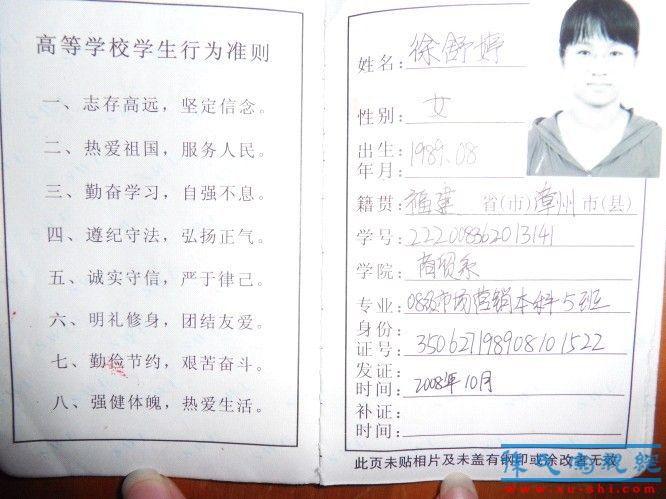 高等学校学生行为准则
一、志存高远，坚定信念。
二、热爱祖国，服务人民。
三、勤奋学习，自强不息。
四、遵纪守法，弘扬正气。
五、诚实守信，严于律己。
六、明礼修身，团结友爱。
七、勤俭节约，艰苦奋斗。
八、强健体魄，热爱生活。
姓名：徐舒婷
性别：女
出生年月：1989.08
籍贯：福建省（市）漳州市（县）
学号：222008362013141
学院：商贸系
专业：08级市场营销本科5班
身份证号：350627198908101522
发证时间：2008年10月
补证时间：
此页未贴相片及未盖有钢印或涂改者无效
www.xu-shi.com